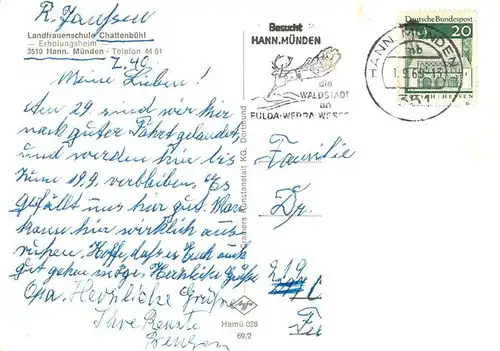 R. Janssen
Landfrauenschule Chattenbühl
— Erholungsheim —
3510 Hann. Münden - Telefon 44 61
Z. 40
Meine Lieben!
Am 29 sind wir hier
nach guter Fahrt gelandet,
und werden hier bis
zum 19.9. verbleiben. Es
gefällt uns hier gut. Man
kann hier wirklich aus-
ruhen. Hoffe, daß es Euch auch
gut gehen möge. Herzliche Grüße
Opa. Herzliche Grüße
Ihre Renate
Cramers Kunstanstalt KG, Dortmund
Hamü 028
69/2
Besucht
HANN.MÜNDEN
die
WALDSTADT
an
FULDA-WERRA-WESER
HANN. MÜNDEN
mb
351
Deutsche Bundespost
20
Familie
Dr.
219